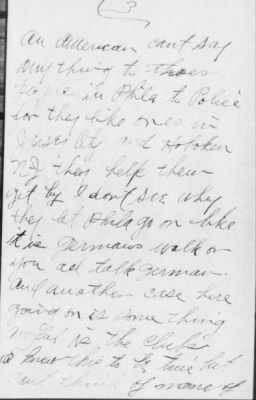 3
An American can't say
any thing to thoes
people in Phila to Police
for they like ones in
Jersey City and Hoboken
NJ they help them
get by I don't see why
they let Phila go on like
it is Germans walk on
you ad talk German
and another case here
going on is some thing
awful is the Clubs
I knew this to be true but
can't think of name of